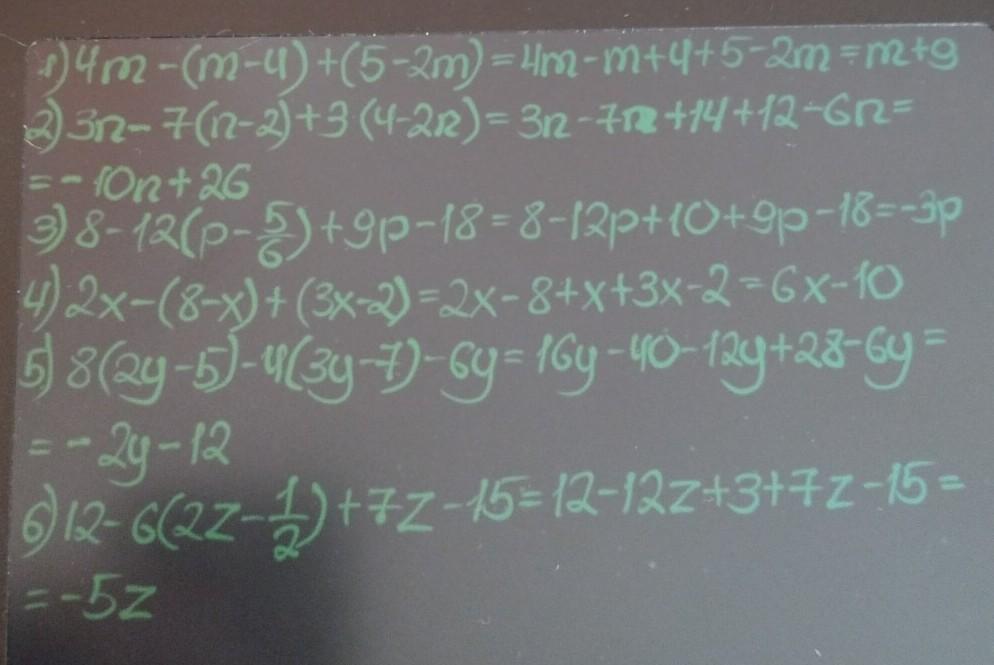 1) 4m - (m-4) + (5-2m) = 4m - m + 4 + 5 - 2m = m + 9
2) 3n - 7(n-2) + 3(4-2n) = 3n - 7n + 14 + 12 - 6n =
= -10n + 26
3) 8 - 12(p - 5/6) + 9p - 18 = 8 - 12p + 10 + 9p - 18 = -3p
4) 2x - (8-x) + (3x-2) = 2x - 8 + x + 3x - 2 = 6x - 10
5) 8(2y-5) - 4(3y-7) - 6y = 16y - 40 - 12y + 28 - 6y =
= -2y - 12
6) 12 - 6(2z - 1/2) + 7z - 15 = 12 - 12z + 3 + 7z - 15 =
= -5z